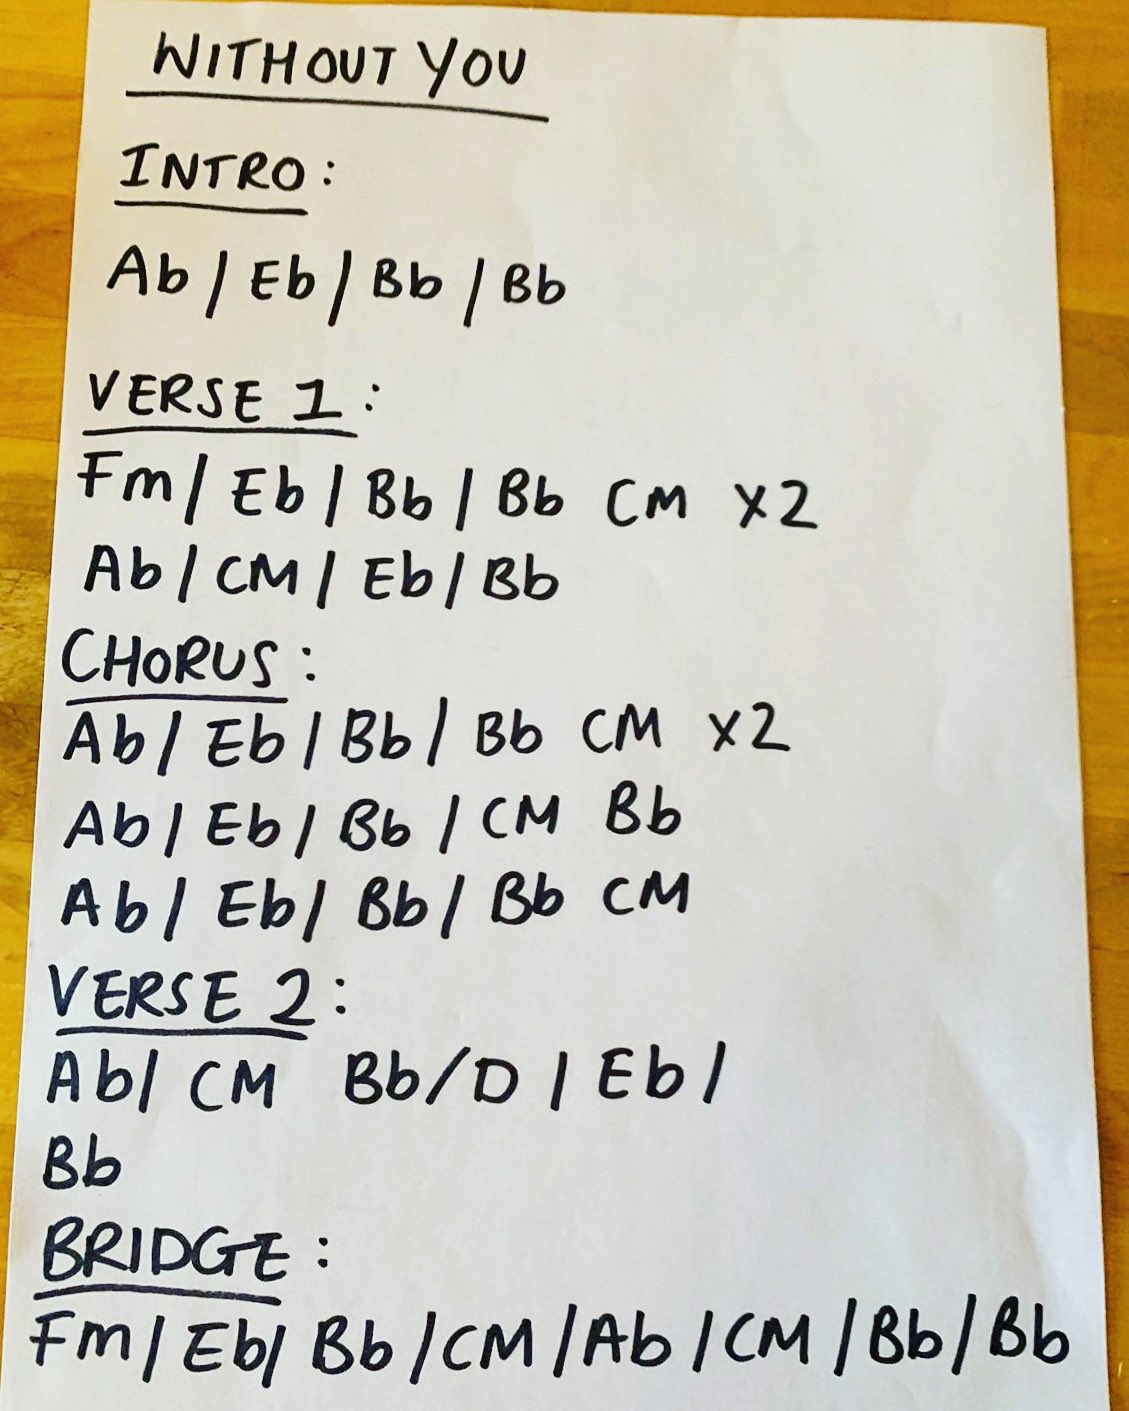 WITHOUT YOU
INTRO:
Ab / Eb / Bb / Bb
VERSE 1:
Fm / Eb / Bb / Bb CM X2
Ab / CM / Eb / Bb
CHORUS:
Ab / Eb / Bb / Bb CM X2
Ab / Eb / Bb / CM Bb
Ab / Eb / Bb / Bb CM
VERSE 2:
Ab / CM Bb/D / Eb /
Bb
BRIDGE:
Fm / Eb / Bb / CM / Ab / CM / Bb / Bb